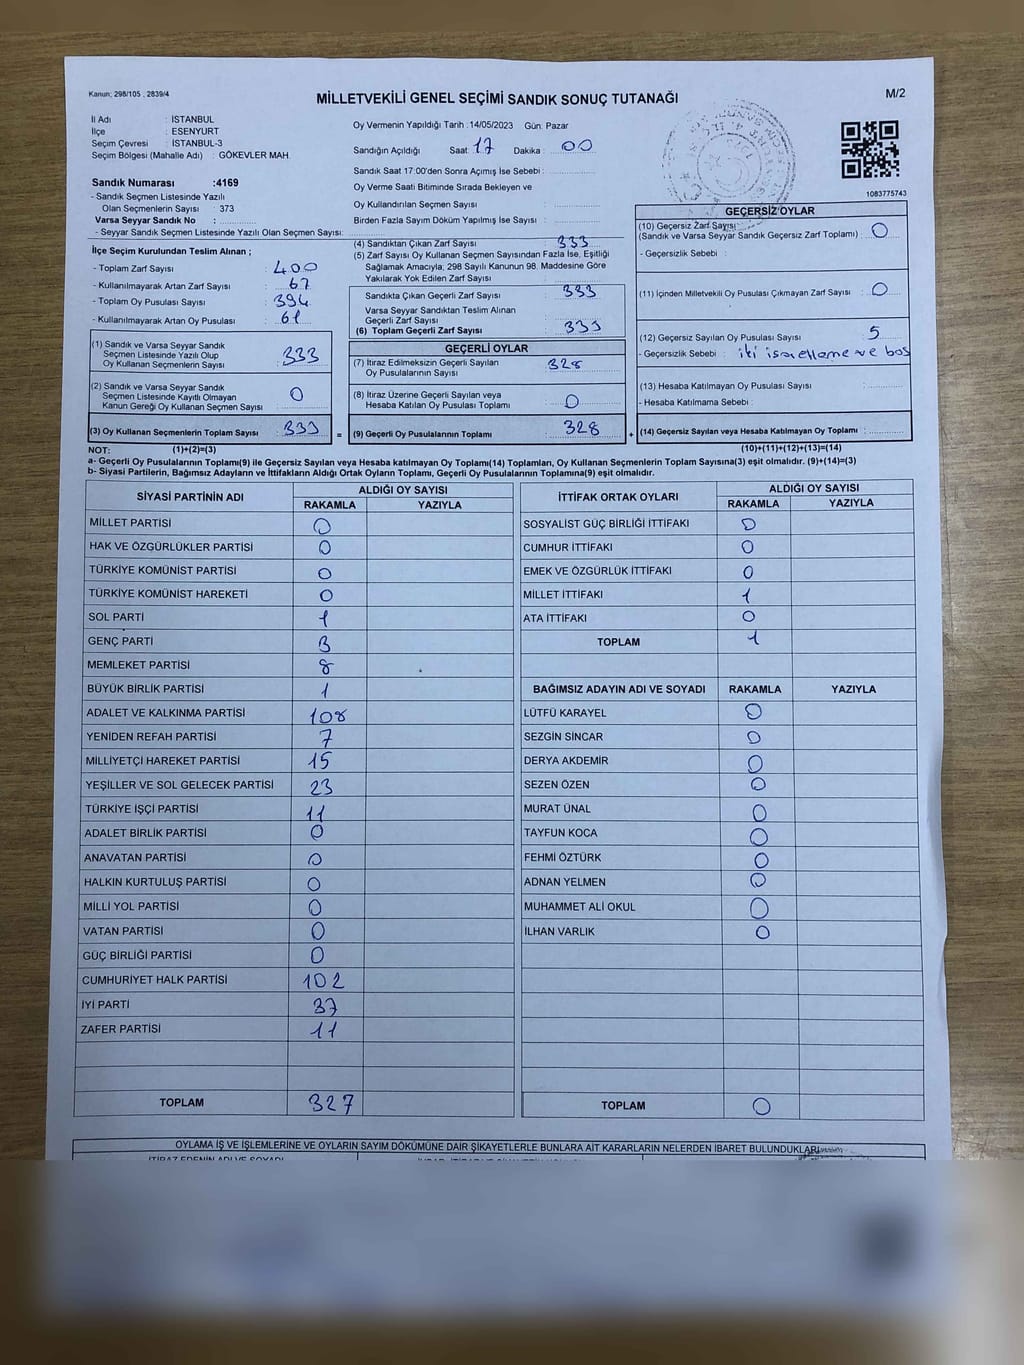 Kanun; 298/105 , 2839/4
MİLLETVEKİLİ GENEL SEÇİMİ SANDIK SONUÇ TUTANAĞI
M/2
İl Adı : İSTANBUL
İlçe : ESENYURT
Seçim Çevresi : İSTANBUL-3
Seçim Bölgesi (Mahalle Adı) : GÖKEVLER MAH.
Sandık Numarası :4169
- Sandık Seçmen Listesinde Yazılı
Olan Seçmenlerin Sayısı : 373
Varsa Seyyar Sandık No :
- Seyyar Sandık Seçmen Listesinde Yazılı Olan Seçmen Sayısı:
İlçe Seçim Kurulundan Teslim Alınan ;
- Toplam Zarf Sayısı : 400
- Kullanılmayarak Artan Zarf Sayısı : 67
- Toplam Oy Pusulası Sayısı : 394
- Kullanılmayarak Artan Oy Pusulası : 61
(1) Sandık ve Varsa Seyyar Sandık
Seçmen Listesinde Yazılı Olup
Oy Kullanan Seçmenlerin Sayısı : 333
(2) Sandık ve Varsa Seyyar Sandık
Seçmen Listesinde Kayıtlı Olmayan
Kanun Gereği Oy Kullanan Seçmen Sayısı : 0
(3) Oy Kullanan Seçmenlerin Toplam Sayısı : 333
Oy Vermenin Yapıldığı Tarih : 14/05/2023 Gün: Pazar
Sandığın Açıldığı Saat : 17 Dakika : 00
Sandık Saat 17:00'den Sonra Açımış İse Sebebi :
Oy Verme Saati Bitiminde Sırada Bekleyen ve
Oy Kullandırılan Seçmen Sayısı :
Birden Fazla Sayım Döküm Yapılmış İse Sayısı :
(4) Sandıktan Çıkan Zarf Sayısı : 333
(5) Zarf Sayısı Oy Kullanan Seçmen Sayısından Fazla İse, Eşitliği
Sağlamak Amacıyla; 298 Sayılı Kanunun 98. Maddesine Göre
Yakılarak Yok Edilen Zarf Sayısı :
Sandıkta Çıkan Geçerli Zarf Sayısı : 333
Varsa Seyyar Sandıktan Teslim Alınan
Geçerli Zarf Sayısı :
(6) Toplam Geçerli Zarf Sayısı : 333
GEÇERLİ OYLAR
(7) İtiraz Edilmeksizin Geçerli Sayılan
Oy Pusulalarının Sayısı : 328
(8) İtiraz Üzerine Geçerli Sayılan veya
Hesaba Katılan Oy Pusulası Toplamı : 0
= (9) Geçerli Oy Pusulalarının Toplamı : 328
1083775743
GEÇERSİZ OYLAR
(10) Geçersiz Zarf Sayısı
(Sandık ve Varsa Seyyar Sandık Geçersiz Zarf Toplamı) : 0
- Geçersizlik Sebebi :
(11) İçinden Milletvekili Oy Pusulası Çıkmayan Zarf Sayısı : 0
(12) Geçersiz Sayılan Oy Pusulası Sayısı : 5
- Geçersizlik Sebebi : iki işaretleme ve boş
(13) Hesaba Katılmayan Oy Pusulası Sayısı :
- Hesaba Katılmama Sebebi :
+ (14) Geçersiz Sayılan veya Hesaba Katılmayan Oy Toplamı :
NOT: (1)+(2)=(3) (10)+(11)+(12)+(13)=(14)
a- Geçerli Oy Pusulalarının Toplamı(9) ile Geçersiz Sayılan veya Hesaba katılmayan Oy Toplamı(14) Toplamları, Oy Kullanan Seçmenlerin Toplam Sayısına(3) eşit olmalıdır. (9)+(14)=(3)
b- Siyasi Partilerin, Bağımsız Adayların ve İttifakların Aldığı Ortak Oyların Toplamı, Geçerli Oy Pusulalarının Toplamına(9) eşit olmalıdır.
SİYASİ PARTİNİN ADI ALDIĞI OY SAYISI
RAKAMLA YAZIYLA
MİLLET PARTİSİ 0
HAK VE ÖZGÜRLÜKLER PARTİSİ 0
TÜRKİYE KOMÜNİST PARTİSİ 0
TÜRKİYE KOMÜNİST HAREKETİ 0
SOL PARTİ 1
GENÇ PARTİ 3
MEMLEKET PARTİSİ 8
BÜYÜK BİRLİK PARTİSİ 1
ADALET VE KALKINMA PARTİSİ 108
YENİDEN REFAH PARTİSİ 7
MİLLİYETÇİ HAREKET PARTİSİ 15
YEŞİLLER VE SOL GELECEK PARTİSİ 23
TÜRKİYE İŞÇİ PARTİSİ 11
ADALET BİRLİK PARTİSİ 0
ANAVATAN PARTİSİ 0
HALKIN KURTULUŞ PARTİSİ 0
MİLLİ YOL PARTİSİ 0
VATAN PARTİSİ 0
GÜÇ BİRLİĞİ PARTİSİ 0
CUMHURİYET HALK PARTİSİ 102
İYİ PARTİ 37
ZAFER PARTİSİ 11
TOPLAM 327
İTTİFAK ORTAK OYLARI ALDIĞI OY SAYISI
RAKAMLA YAZIYLA
SOSYALİST GÜÇ BİRLİĞİ İTTİFAKI 0
CUMHUR İTTİFAKI 0
EMEK VE ÖZGÜRLÜK İTTİFAKI 0
MİLLET İTTİFAKI 1
ATA İTTİFAKI 0
TOPLAM 1
BAĞIMSIZ ADAYIN ADI VE SOYADI RAKAMLA YAZIYLA
LÜTFÜ KARAYEL 0
SEZGİN SİNCAR 0
DERYA AKDEMİR 0
SEZEN ÖZEN 0
MURAT ÜNAL 0
TAYFUN KOCA 0
FEHMİ ÖZTÜRK 0
ADNAN YELMEN 0
MUHAMMET ALİ OKUL 0
İLHAN VARLIK 0
TOPLAM 0
OYLAMA İŞ VE İŞLEMLERİNE VE OYLARIN SAYIM DÖKÜMÜNE DAİR ŞİKAYETLERLE BUNLARA AİT KARARLARIN NELERDEN İBARET BULUNDUKLARI
İTİRAZ EDENİN ADI VE SOYADI